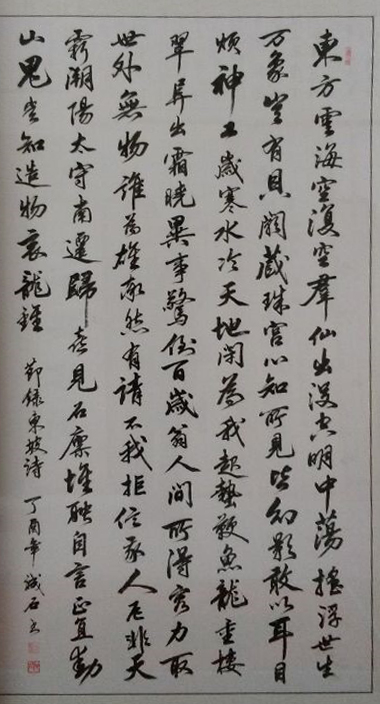 東方雲海空復空群仙出没空明中蕩搖浮世生
万象豈有貝闕藏珠宮心知所見皆幻影敢以耳目
煩神工歲寒水冷天地閉為我起蟄鞭魚龍重樓
翠阜出霜曉異事驚倒百歲翁人間所得容力取
世外無物誰為雄率然有請不我拒信我人厄非天
窮潮陽太守南遷歸喜見石廩堆融自言正直動
山鬼豈知造物哀龍鍾
節録東坡詩 丁酉年 誠石書